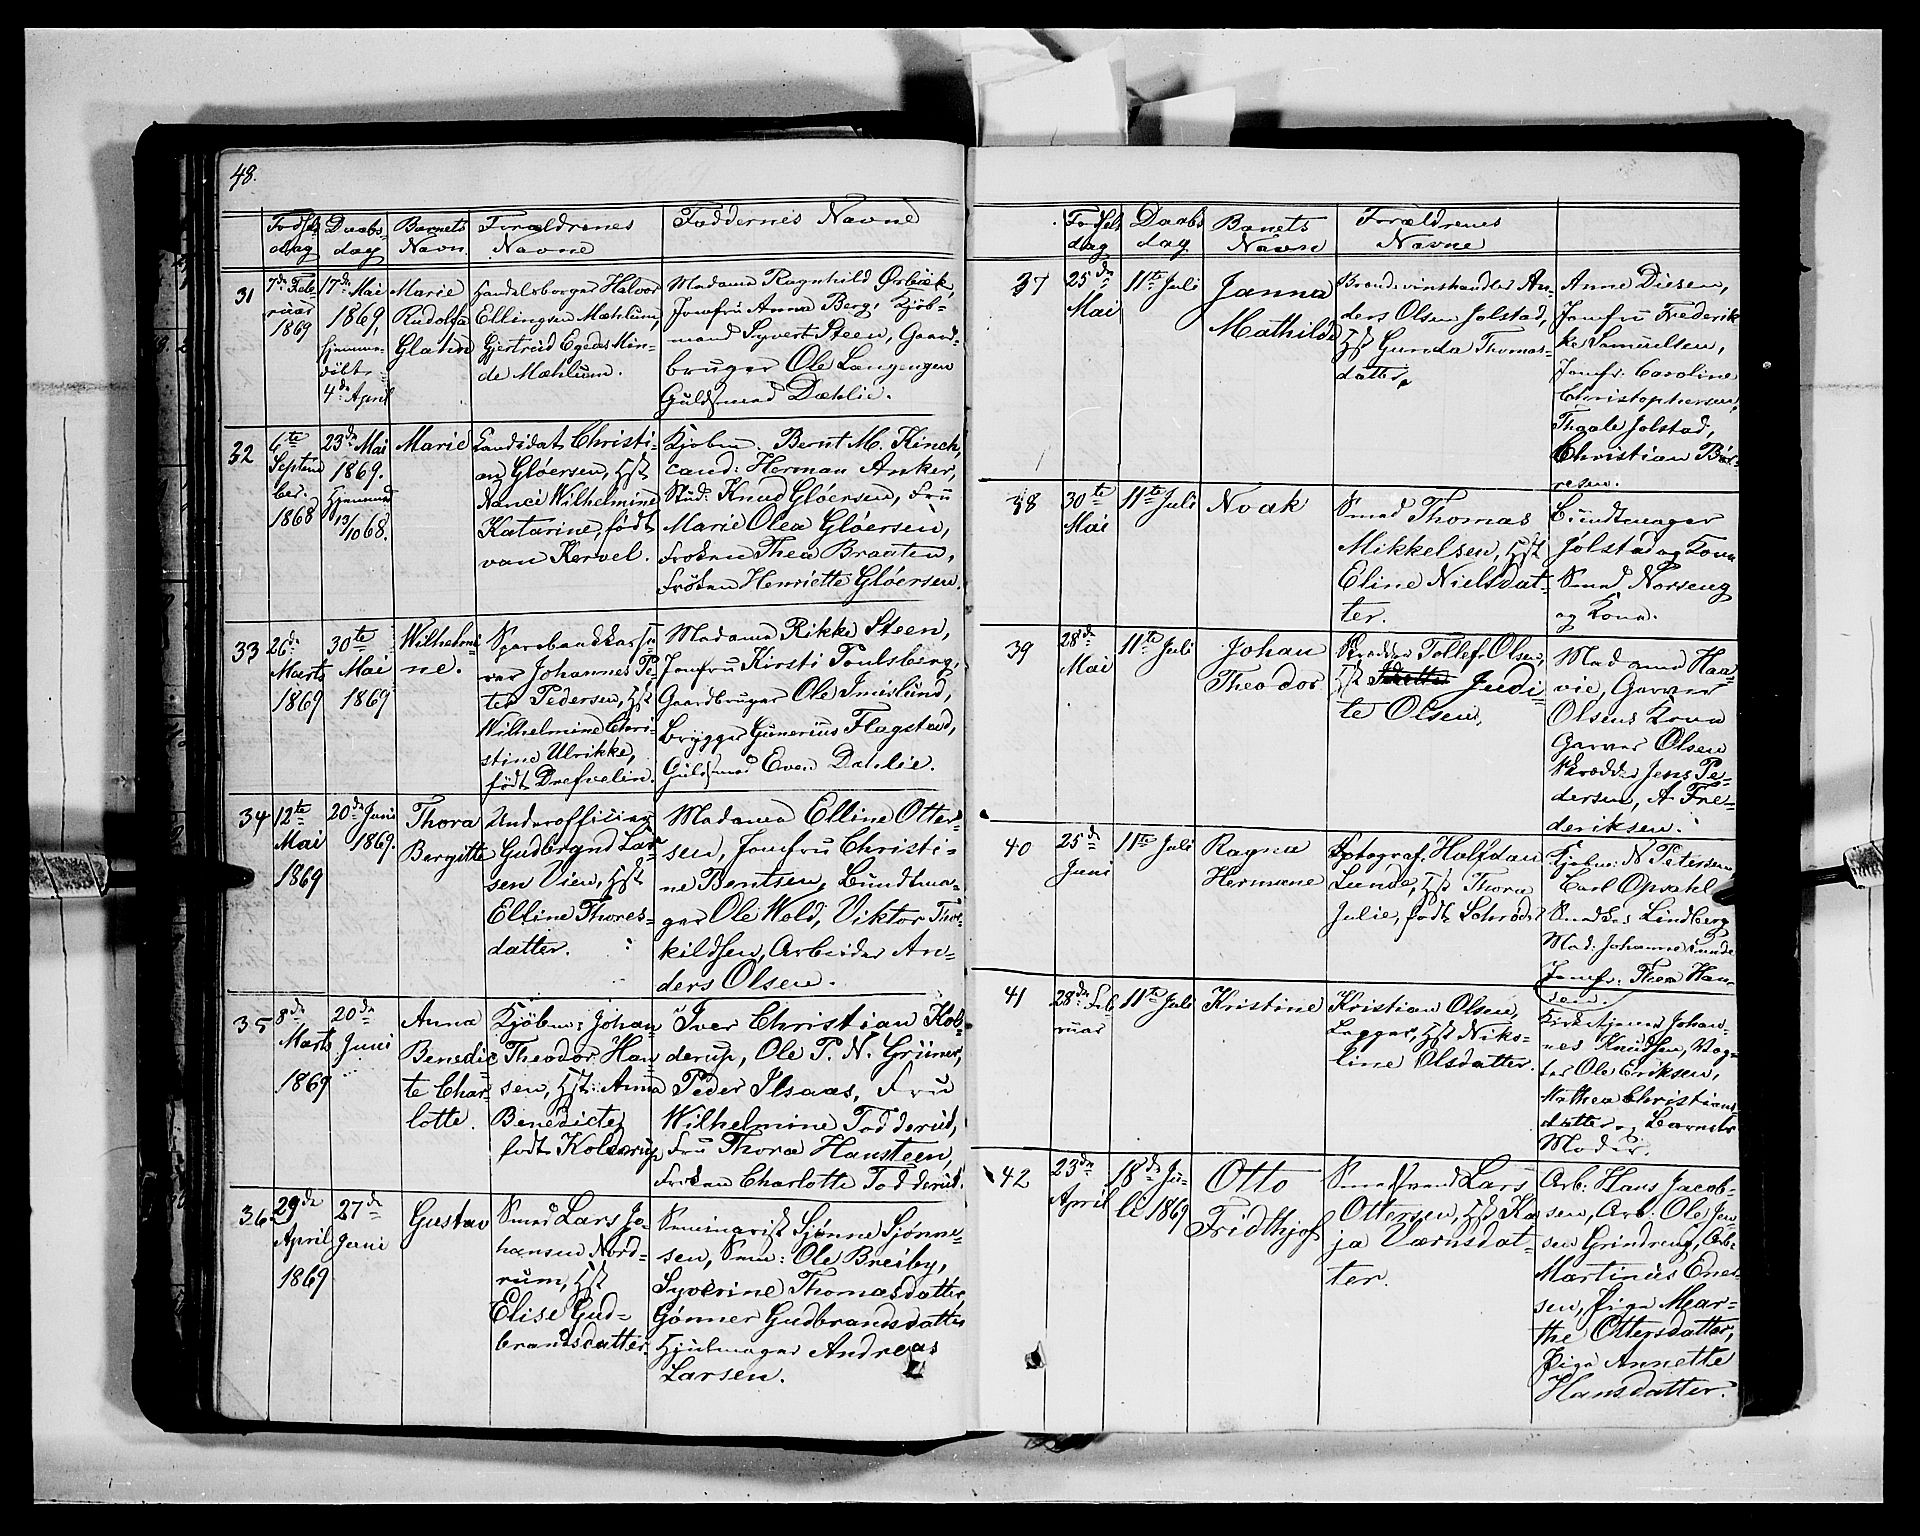 48.
Fødsels
dag
Daabs-
dag
Barnets
Navn
Forældrenes
Navne
Faddernes Navne
31
7de Feb-
ruar
1869
17de Mai
1869,
hjemme-
døbt
4de April
Marie
Rudolfa
Handelsborger Halvor
Ellingsen Mæhlum,
Gjertrud Egedes Min-
de Mæhlum.
Madame Ragnhild
Jomfru Anna Berg, Kjøb-
mand Syvert Steen, Gaard-
bruger Ole Langengen
Guldsmed Dæhlie.
32
6te
Septem
ber.
1868
23de Mai
1869.
Hjemmed
13/10 68.
Marie
Candidat Christi-
an Gløersen, Hst
Nanci Wilhelmine
Katarine, født
van Kervel.
Kjøbm. Bernt M. Kinch,
cand: Herman Anker,
Stud: Knud Gløersen, Fru
Marie Olea Gløersen,
Frøken Thea Braaten,
Frøken Henriette Gløersen.
33
26de
Marts
1869
30te
Mai
1869
Wilhelmi-
ne.
Sparebankkasse-
rer Johannes Pe-
ter Pedersen, Hst
Wilhelmine Chri-
stine Ulrikke,
født Drefvelin.
Madame Rikke Steen,
Jomfru Kirsti Poulsberg,
Gaardbruger Ole Imislund,
Brygger Gunerius Flagstad,
Guldsmed Even Dahlie.
34
12te
Mai
1869
20de Juni
1869.
Thora
Bergitte
Underofficier
Gudbrand Lar-
sen Vien, Hst
Elline Thores-
datter.
Madame Elline Otter-
sen, Jomfru Christi-
ne Bentsen, Bundtma-
ger Ole Wold, Viktor Thor-
kildsen, Arbeider An-
ders Olsen.
35
8de
Marts
1869
20de
Juni
Anna
Benedic-
te Char-
lotte.
Kjøbm: Johan
Theodor Han-
sen, Hst: Anna
Benedicte,
født Kolderup
Iver Christian Kol-
derup, Ole P. N. Grüner,
Peder Ilsaas, Fru
Wilhelmine Todderud,
Fru Thora Hansteen,
Frøken Charlotte Todderud.
36
29de
April
1869
27de
Juni
Gustav
Smed Lars Jo-
hansen Nord-
rum, Hst
Elise Gud-
brandsdatter.
Seminarist Sjønne Sjønne-
sen, Sem: Ole Breiby,
Syverine Thomasdatter,
Gønner Gudbrandsdatter
Hjulmager Andreas
Larsen.
Fødsels
dag
Daabs
dag
Banets
Navn
Forældrenes
Navne
37
25de
Mai
11te Juli
Janna
Mathilde
Brændevinshandler An-
ders Olsen Jolstad,
Hst Gunda Thomas-
datter.
Anne Diesen,
Jomfru Frederik-
ke Samuelsen,
Jomfr. Caroline
Christophersen,
Thrale Jolstad,
Christian Bør-
resen.
38
30te
Mai
11te Juli
Noak
Smed Thomas
Mikkelsen, Hst
Eline Nielsdat-
ter.
Bundtmager
Jølstad og Kone
Smed Norseng
og Kone.
39
28de
Mai
11te Juli
Johan
Theodor
Skrædder Tollef Olsen,
Hst Judi
te Olsen,
Madame Haa-
vie, Garver
Olsens Kone
Garver Olsen
Skrædder Jens Pe-
dersen, A Fre-
deriksen.
40
25de
Juni
11te Juli
Ragna
Hermane
Fotograf. Halfdan
Lunde, Hst Thora
Julie, født Schrøder
Kjøbm: N Petersen
Carl Opsahl
Lindberg
Mad: Johanne Lunde
Jomfr: Thea Han-
sen.
41
28de Feb
ruar
11te Juli
Kristine
Kristian Olsen,
Lægger, Hst Niko-
line Olsdatter.
Kirketjener Johan-
nes Knudsen, Vog-
ter Ole Eriksen,
Mathea Christians-
datter og Barnets
Moder.
42
23de
April
18de Ju-
li 1869
Otto
Fridthjof
Smedsvend Lars
Ottersen, Hst Ka
ja Værnsdat-
ter.
Arb: Hans Jacob-
sen, Arb. Ole Jen-
sen Grindreng, Arb:
Martinus Ener-
sen, Pige Mar-
the Ottersdatter,
Pige Annette
Hansdatter.